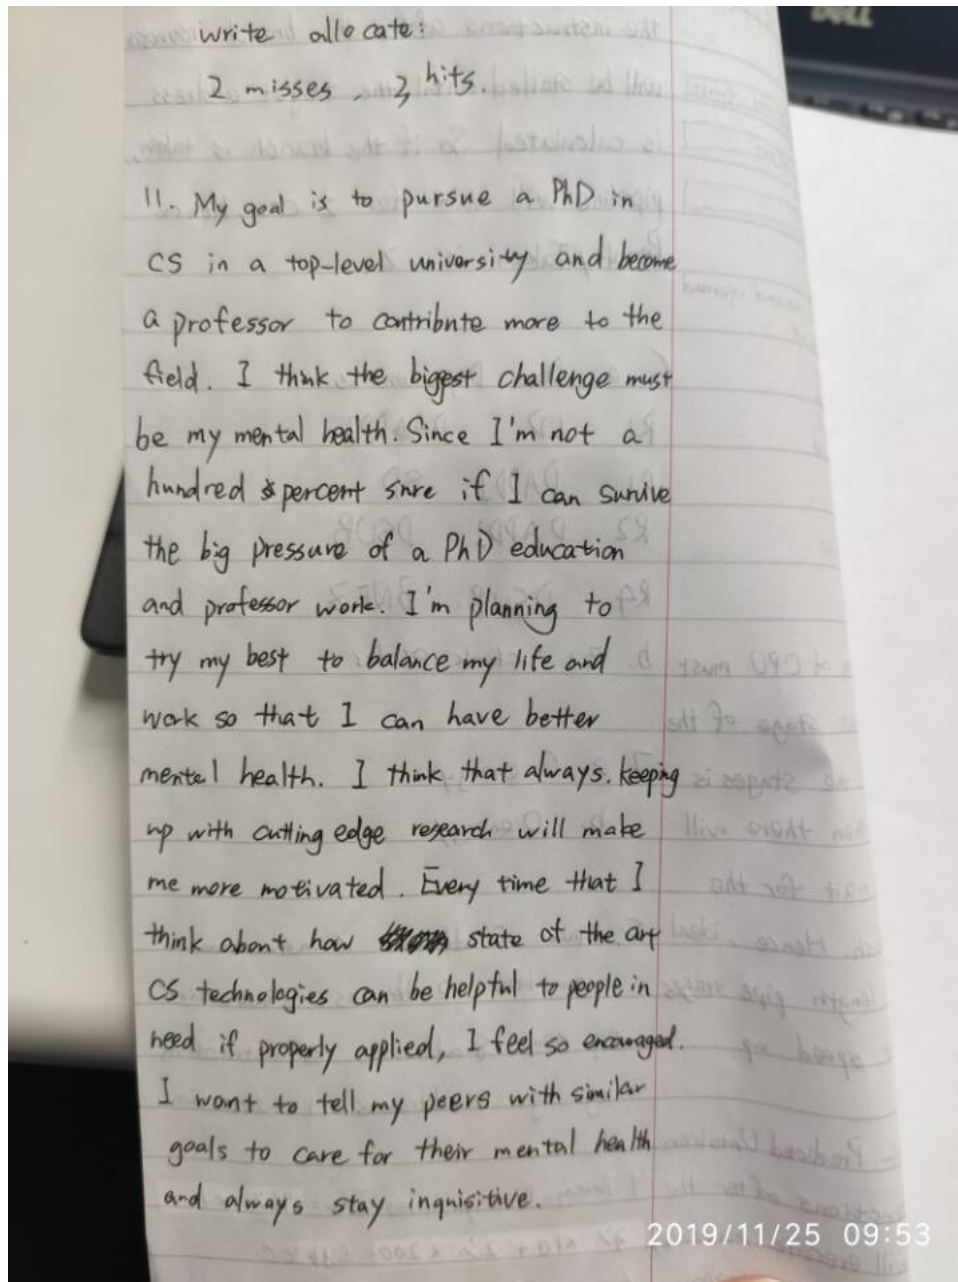 write allocate:
2 misses, 3 hits.
11. My goal is to pursue a PhD in
CS in a top-level university and become
a professor to contribute more to the
field. I think the biggest challenge must
be my mental health. Since I'm not a
hundred percent sure if I can survive
the big pressure of a PhD education
and professor work. I'm planning to
try my best to balance my life and
work so that I can have better
mental health. I think that always keeping
up with cutting edge research will make
me more motivated. Every time that I
think about how state of the art
CS technologies can be helpful to people in
need if properly applied, I feel so encouraged.
I want to tell my peers with similar
goals to care for their mental health
and always stay inquisitive.
2019/11/25 09:53
DELL